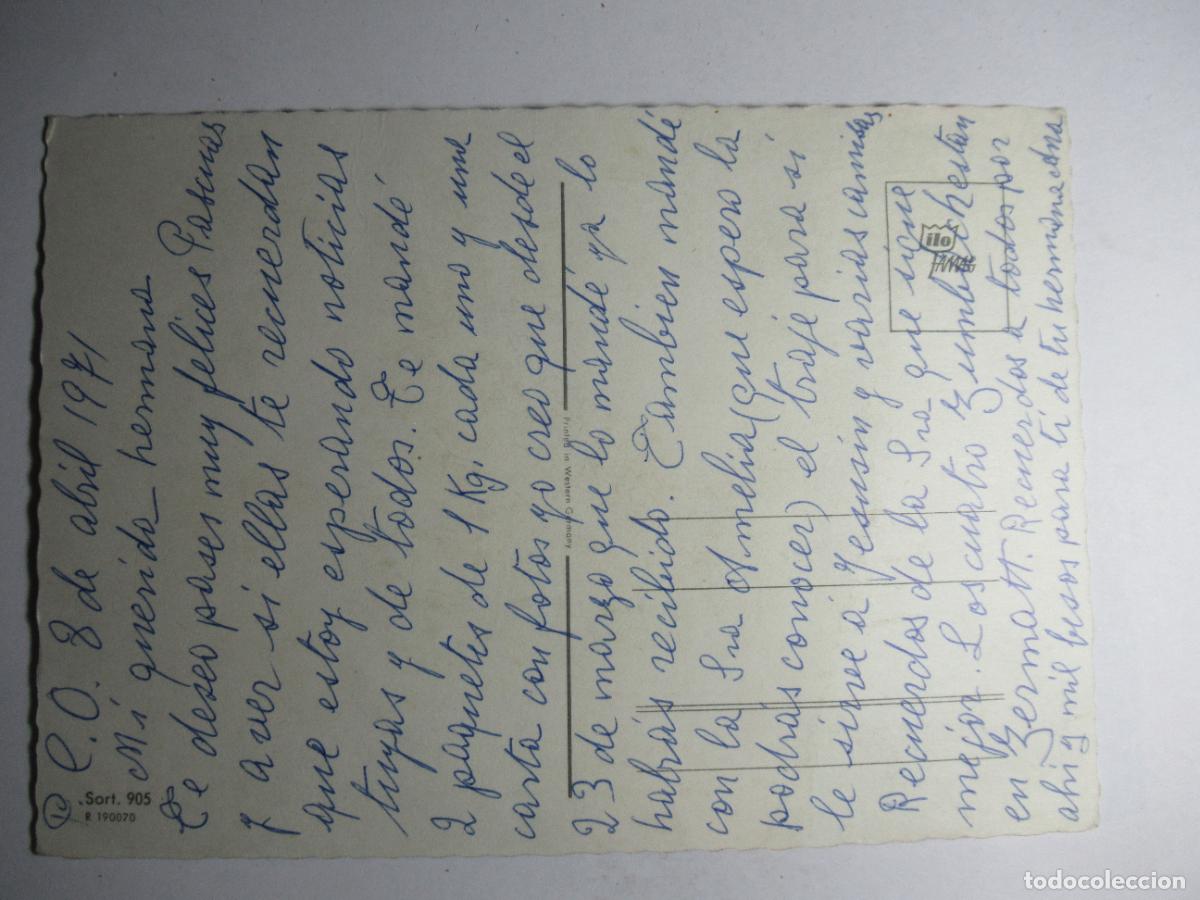 C. O. 8 de abril 1971
Mi querida hermana
Te deseo pases muy felices Pascuas
y a ver si ellas te recuerdan
que estoy esperando noticias
tuyas y de todos. Te mandé
2 paquetes de 1 Kg, cada uno y una
carta con fotos yo creo que desde el
23 de marzo que lo mandé ya lo
habrás recibido. Tambien mandé
con la Sra Amelia (que espero la
podrás conocer) el traje para si
le sirve a Yessin y varias camisas
Recuerdos de la Sra que sigue
mejor. Los cuatro Zumbach están
en Zermatt. Recuerdos a todos por
ahi y mil besos para ti de tu hermana Ana
Sort. 905
R 190070
Printed in Western Germany
ilo
todocoleccion